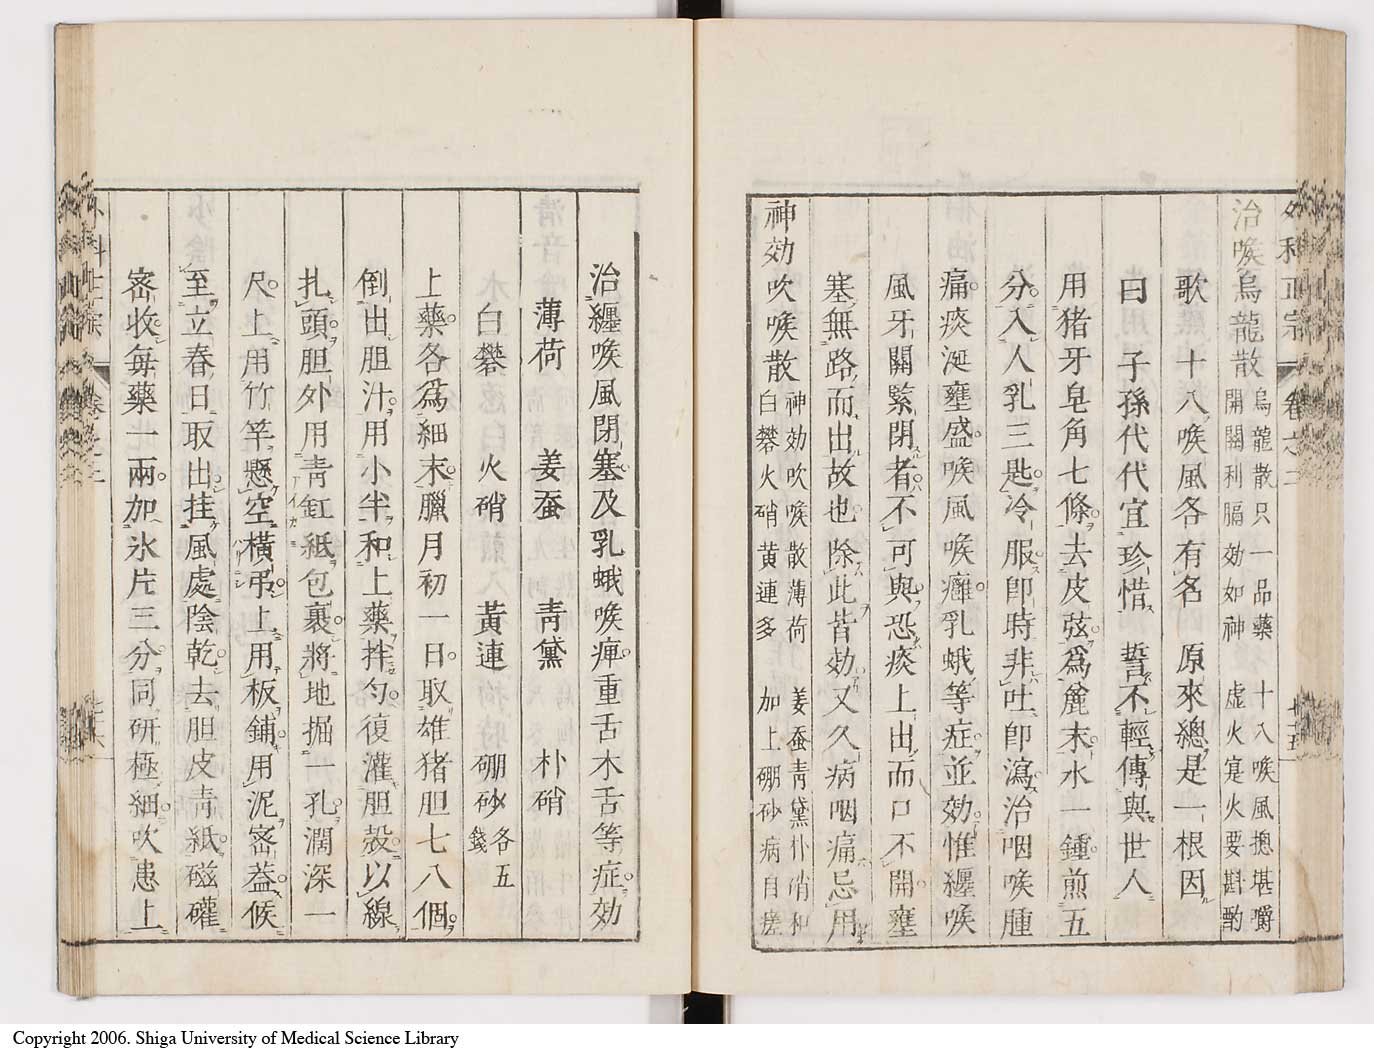 治喉烏龍散
烏龍散只一品藥　十八喉風摠堪嚼
開關利膈効如神　虚火寔火要斟酌
歌　十八喉風各有名　原來總是一根因
曰　子孫代代宜珍惜　誓不輕傳與世人
用猪牙皂角七條去皮弦爲麄末水一鍾煎五
分入人乳三匙冷服卽時非吐卽瀉治咽喉腫
痛痰涎壅盛喉風喉癰乳蛾等症並効惟纒喉
風牙關緊閉者不可與恐痰上出而口不開壅
塞無路而出故也除此皆効又久病咽痛忌用
神効吹喉散
神効吹喉散薄荷　姜蚕青黛朴硝和
白礬火硝黄連多　加上硼砂病自瘥
外科正宗　卷之二　廿五
治纒喉風閉塞及乳蛾喉痺重舌木舌等症効
薄荷　姜蚕　青黛　朴硝
白礬　火硝　黄連　硼砂各五錢
上藥各爲細末臘月初一日取雄猪胆七八個
倒出胆汁用小半和上藥拌匀復灌胆殼以線
扎頭胆外用青缸紙包裹將地掘一孔濶深一
尺上用竹竿懸空橫吊上用板鋪用泥宻葢候
至立春日取出挂風處陰乾去胆皮青紙磁礶
宻收每藥一兩加氷片三分同研極細吹患上
Copyright 2006. Shiga University of Medical Science Library